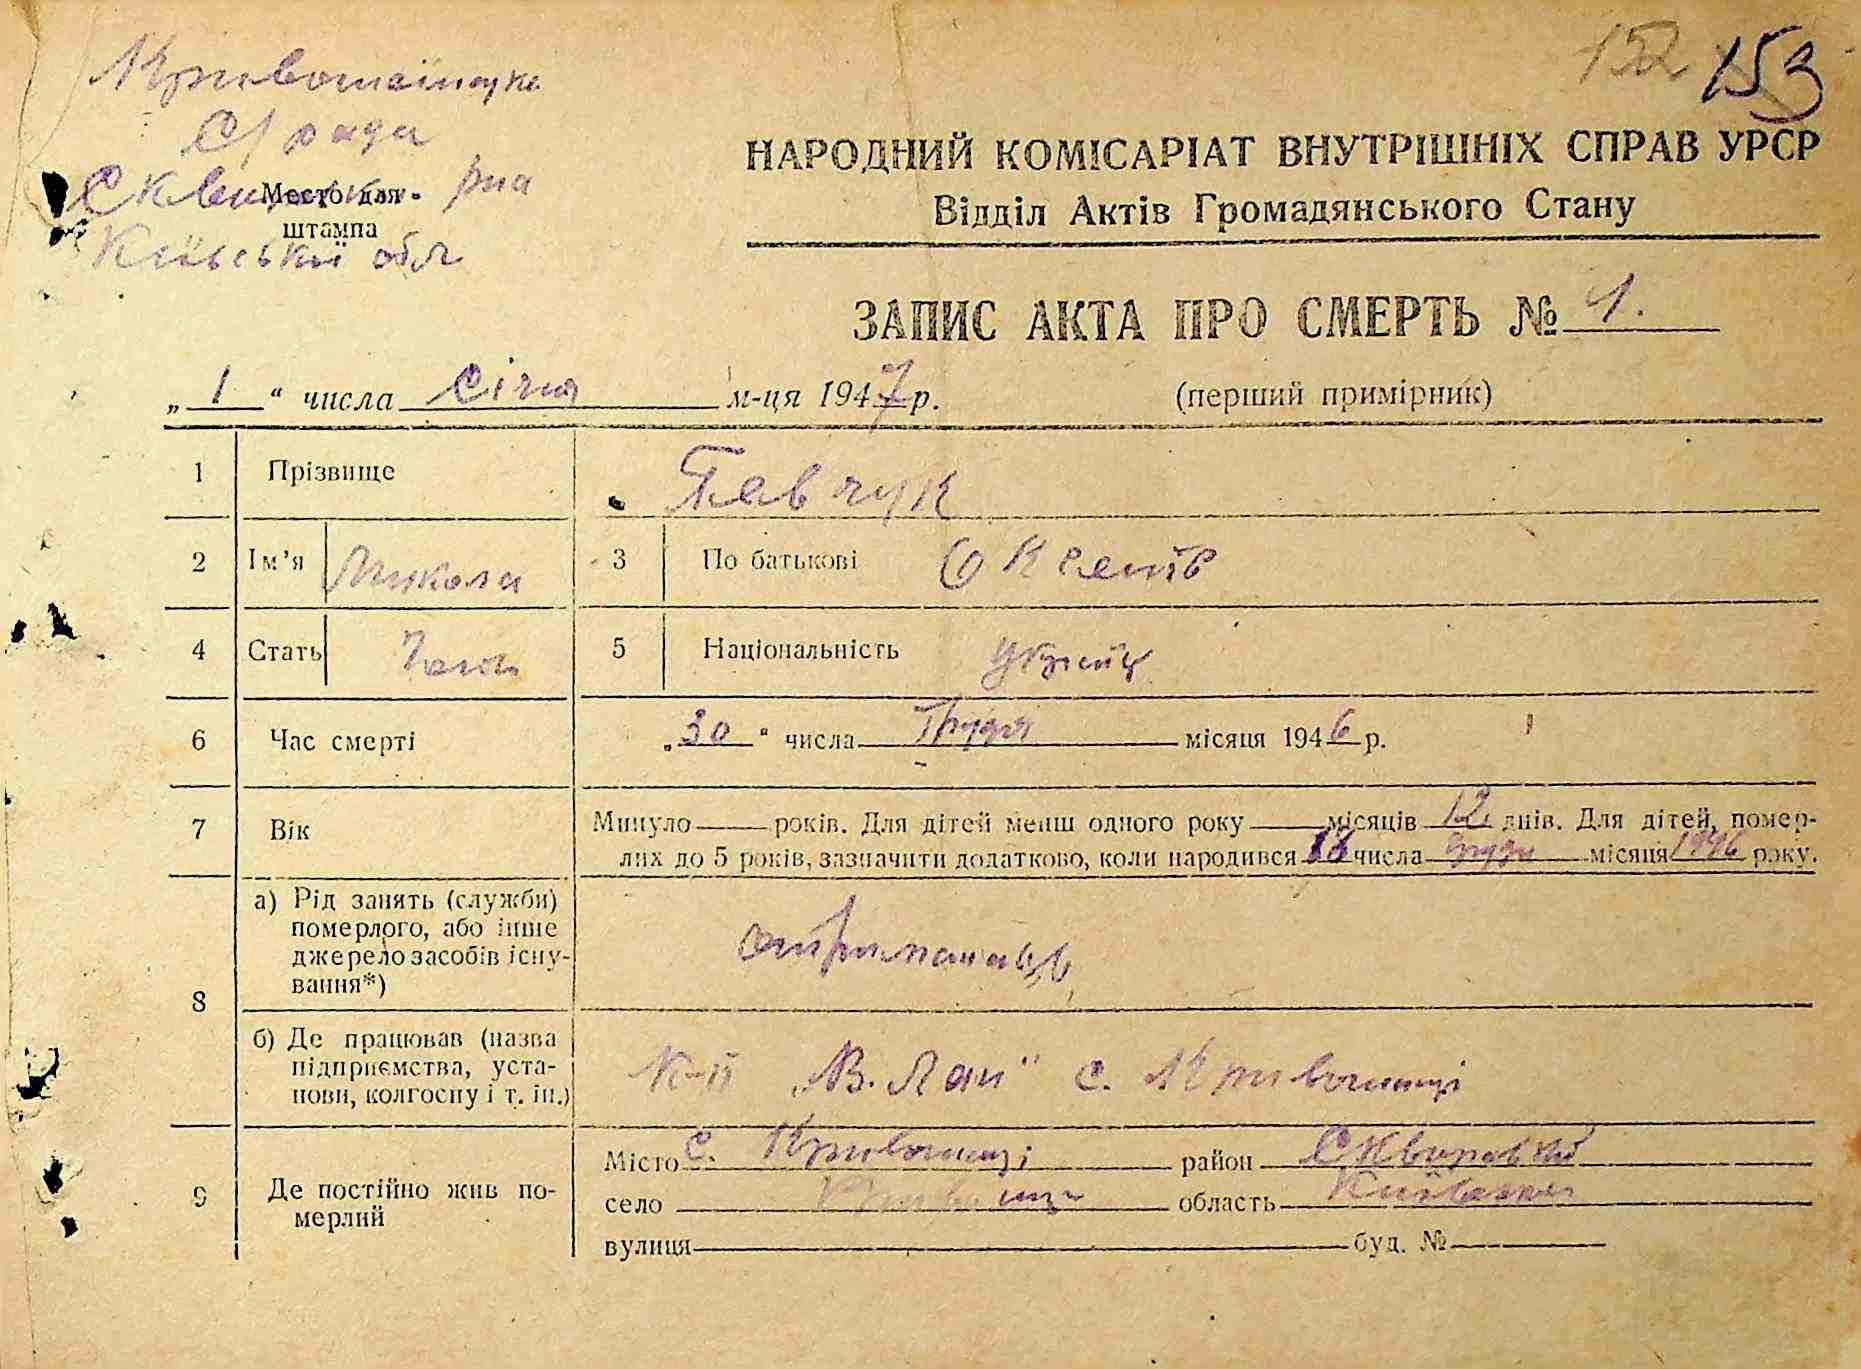 152 153
Кривошеїнська
С/рада
Сквирськ. р-на
Київської обл
Место для
штампа
НАРОДНИЙ КОМІСАРІАТ ВНУТРІШНІХ СПРАВ УРСР
Відділ Актів Громадянського Стану
ЗАПИС АКТА ПРО СМЕРТЬ № 1.
„ 1 “ числа Січня м-ця 1947 р. (перший примірник)
1 Прізвище Павчук
2 Ім’я Микола 3 По батькові
4 Стать Чол. 5 Національність Українц
6 Час смерті „30“ числа Грудня місяця 1946 р.
7 Вік Минуло — років. Для дітей менш одного року — місяців 12 днів. Для дітей, помер-
лих до 5 років, зазначити додатково, коли народився 18 числа грудн місяця 1946 року.
8 а) Рід занять (служби)
померлого, або інше
джерело засобів існу-
вання*) отриманець
б) Де працював (назва
підприємства, уста-
нови, колгоспу і т. ін.) К-п „В. Лан“ с. Кривошиці
9 Де постійно жив по-
мерлий
Місто с. Кривошиці район Сквирський
село Кривошиці область Київська
вулиця — буд. № —